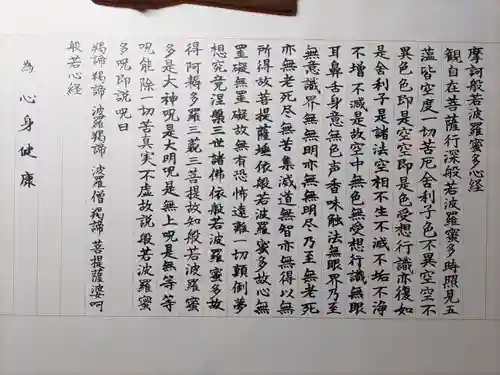 摩訶般若波羅蜜多心経
観自在菩薩行深般若波羅蜜多時照見五
蘊皆空度一切苦厄舍利子色不異空空不
異色色即是空空即是色受想行識亦復如
是舍利子是諸法空相不生不滅不垢不浄
不増不減是故空中無色無受想行識無眼
耳鼻舌身意無色声香味触法無眼界乃至
無意識界無無明亦無無明尽乃至無老死
亦無老死尽無苦集滅道無智亦無得以無
所得故菩提薩埵依般若波羅蜜多故心無
罣礙無罣礙故無有恐怖遠離一切顛倒夢
想究竟涅槃三世諸佛依般若波羅蜜多故
得阿耨多羅三藐三菩提故知般若波羅蜜
多是大神呪是大明呪是無上呪是無等等
呪能除一切苦真実不虚故説般若波羅蜜
多呪即説呪曰
羯諦羯諦 波羅羯諦 波羅僧羯諦 菩提薩婆呵
般若心経
為 心身健康